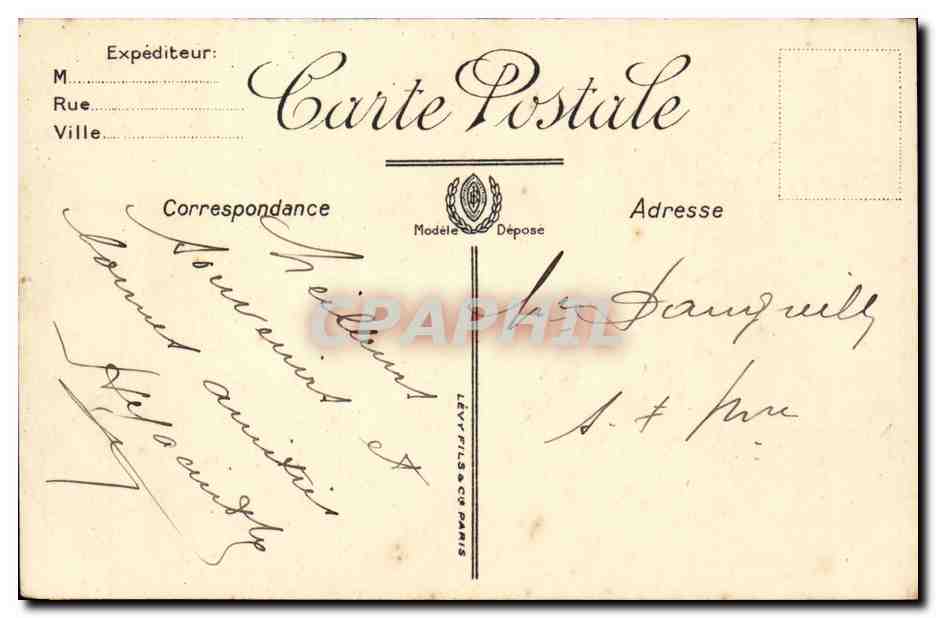 Expéditeur:
M
Rue
Ville
Carte Postale
Correspondance
Modèle Déposé
Adresse
Meilleurs
souvenirs et
bonnes amitiés
LÉVY FILS & Cie PARIS
CPAPHIL